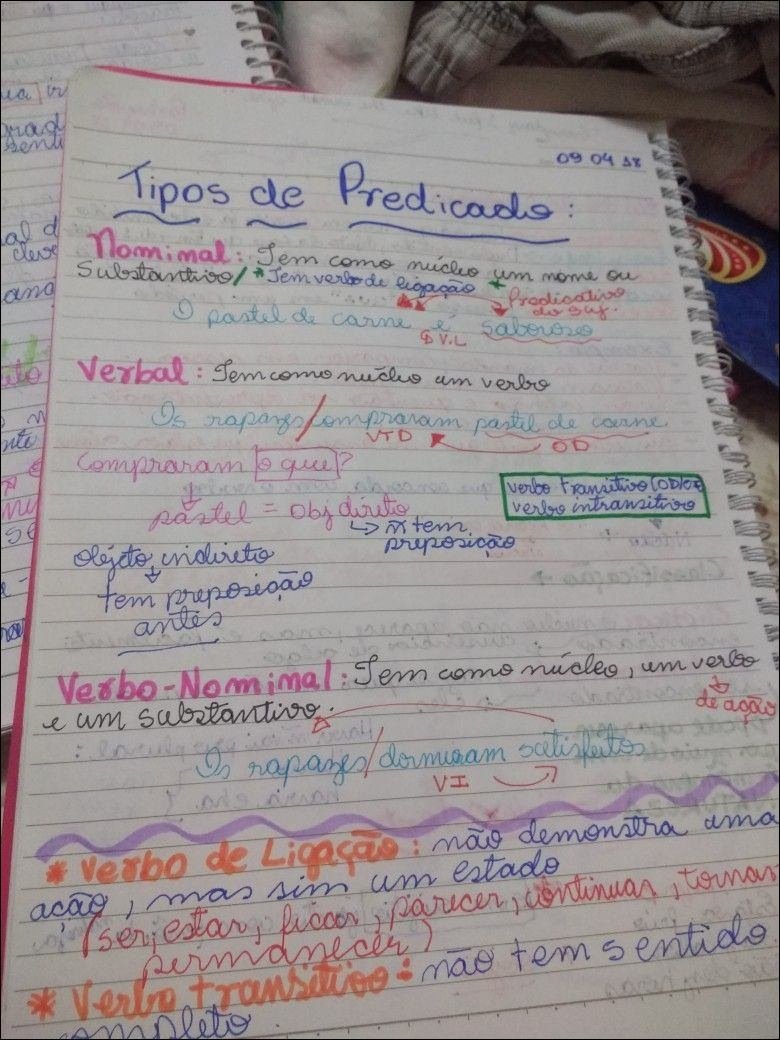 09 04 18
Tipos de Predicado:
Nominal: Tem como núcleo um nome ou
Substantivo/ * Tem verbo de ligação
Predicativo
do suj.
O pastel de carne é saboroso
V.L
Verbal: Tem como núcleo um verbo
Os rapazes/compraram pastel de carne
VTD OD
Compraram o que?
pastel = obj direto
verbo transitivo (OD/OI)
verbo intransitivo
ñ tem
preposição
Objeto indireto
tem preposição
antes
Verbo-Nominal: Tem como núcleo, um verbo
de ação
e um substantivo.
Os rapazes/dormiram satisfeitos
VI
* Verbo de Ligação: não demonstra uma
ação, mas sim um estado
(ser, estar, ficar, parecer, continuar, tornar
permanecer)
* Verbo transitivo: não tem sentido
completo